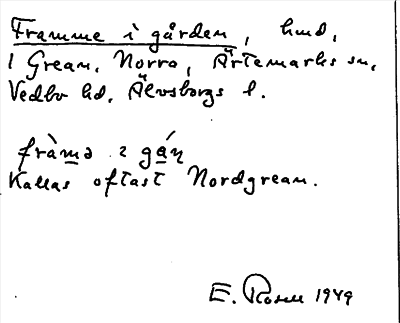 Framme i gården, hmd,
i Grean, Norra, Ärtemarks sn,
Vedbo hd, Älvsborgs l.
fràmə ɩ gáɳ
Kallas oftast Nordgrean.
E. Rosell 1949